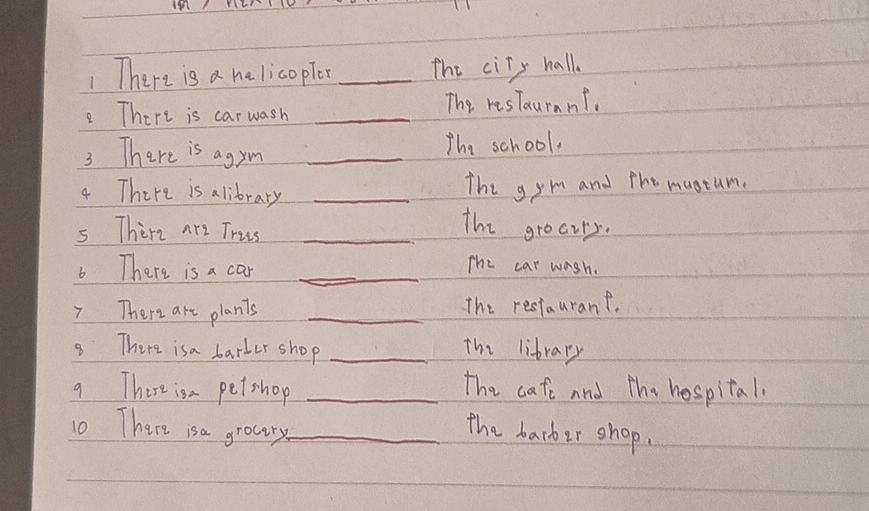 1 There is a helicopter ____ the city hall.
2 There is car wash ____ The restaurant.
3 There is a gym ____ the school.
4 There is a library ____ the gym and the museum.
5 There are Trees ____ the grocery.
6 There is a car ____ the car wash.
7 There are plants ____ the restaurant.
8 There is a barber shop ____ the library
9 There is a pet shop ____ the cafe and the hospital.
10 There is a grocery ____ the barber shop.